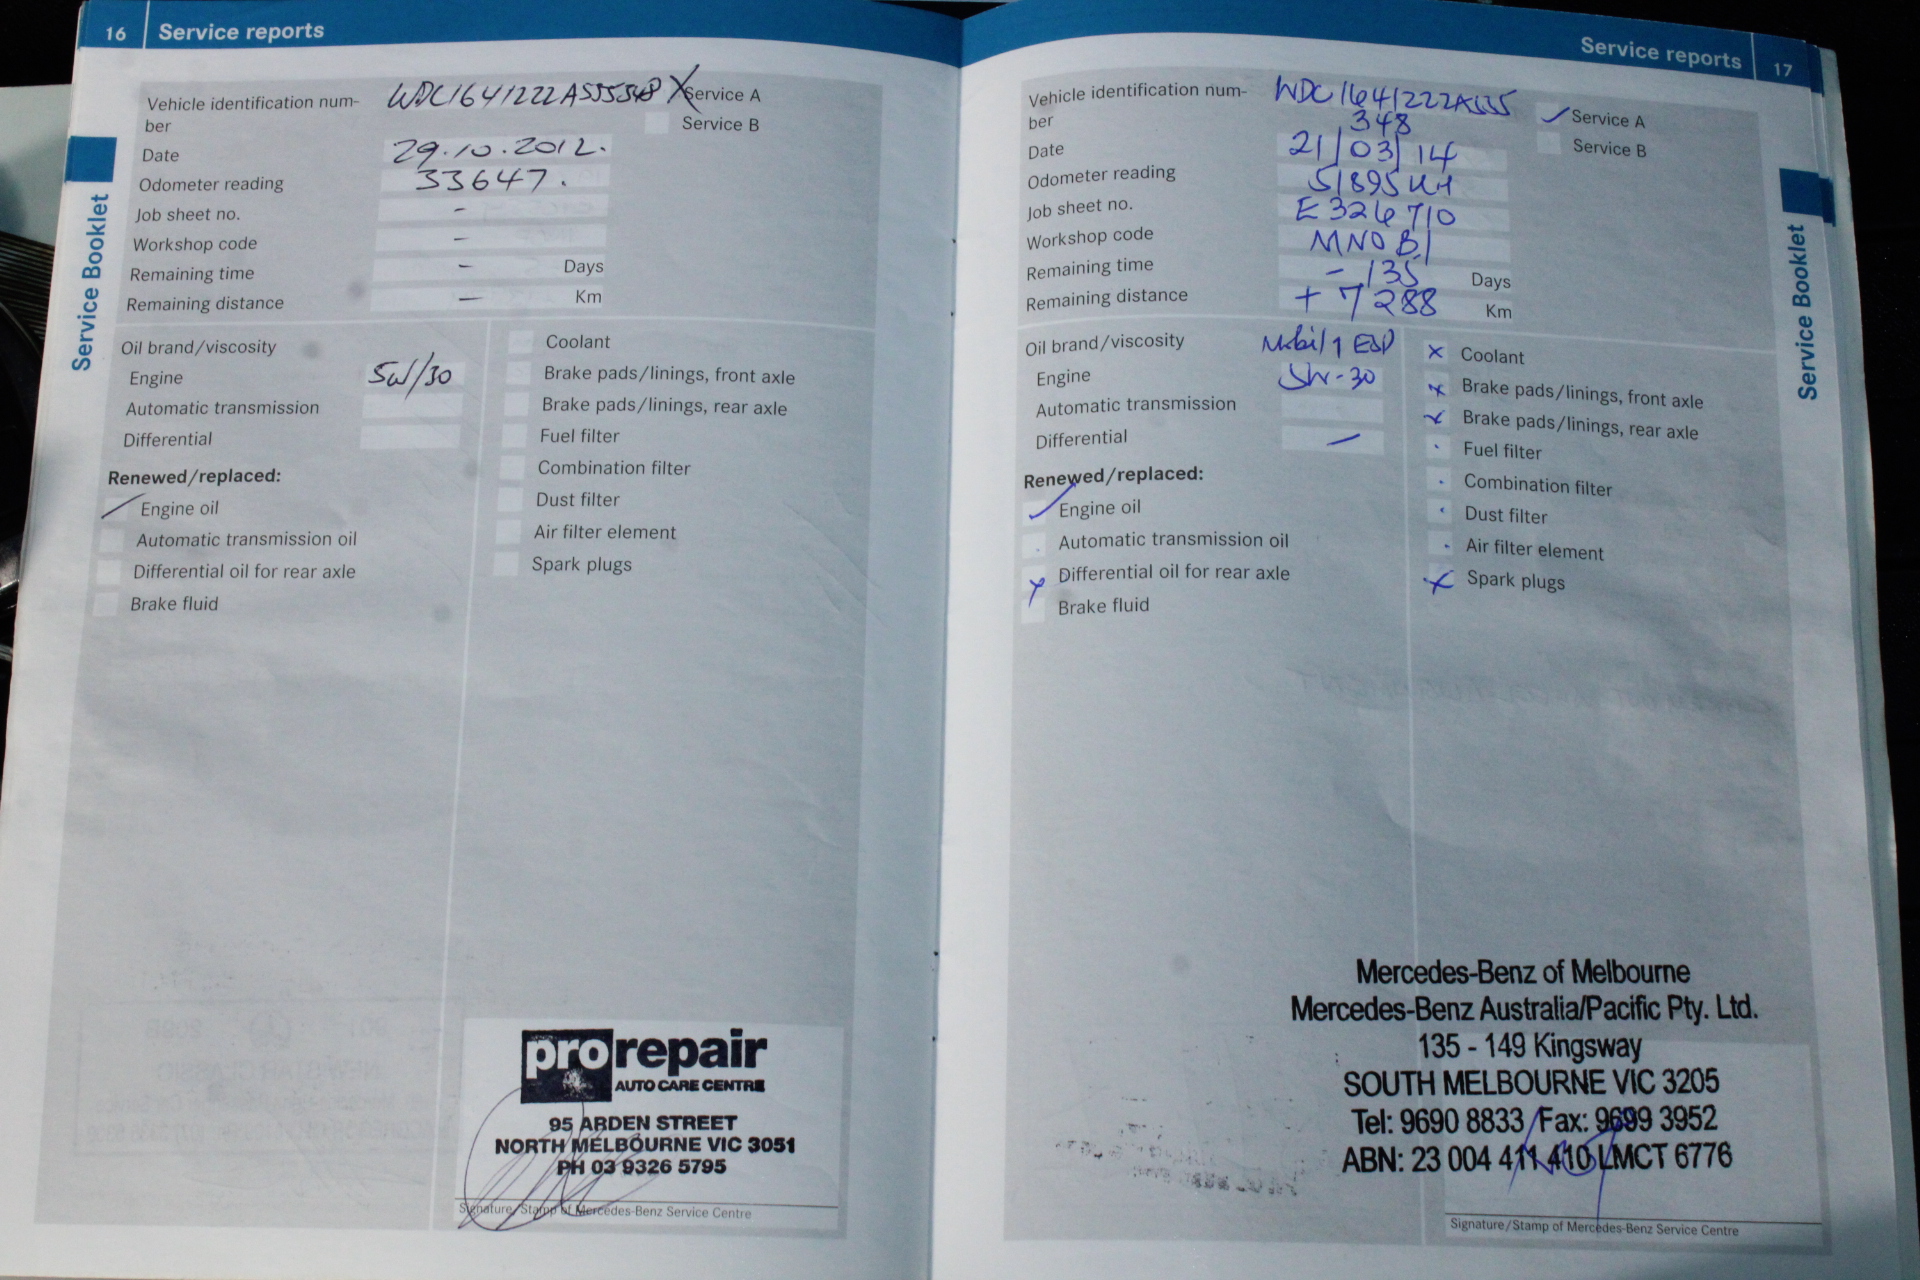 16 Service reports
Vehicle identification num-
ber
WDC1641222A535348
Service A
Service B
Date 29.10.2012.
Odometer reading 33647.
Job sheet no. -
Workshop code -
Remaining time - Days
Remaining distance - Km
Oil brand/viscosity
Engine 5W/30
Automatic transmission
Differential
Renewed/replaced:
Engine oil
Automatic transmission oil
Differential oil for rear axle
Brake fluid
Coolant
Brake pads/linings, front axle
Brake pads/linings, rear axle
Fuel filter
Combination filter
Dust filter
Air filter element
Spark plugs
prorepair
AUTO CARE CENTRE
95 ARDEN STREET
NORTH MELBOURNE VIC 3051
PH 03 9326 5795
Signature/Stamp of Mercedes-Benz Service Centre
Service Booklet
Service reports 17
Vehicle identification num-
ber
WDC1641222A535
348
Service A
Service B
Date 21/03/14
Odometer reading 51895 KM
Job sheet no. E326710
Workshop code MNOB1
Remaining time - 135 Days
Remaining distance + 7288 Km
Oil brand/viscosity Mobil 1 ESP
Engine 5W-30
Automatic transmission
Differential -
Renewed/replaced:
Engine oil
Automatic transmission oil
Differential oil for rear axle
Brake fluid
Coolant
Brake pads/linings, front axle
Brake pads/linings, rear axle
Fuel filter
Combination filter
Dust filter
Air filter element
Spark plugs
Mercedes-Benz of Melbourne
Mercedes-Benz Australia/Pacific Pty. Ltd.
135 - 149 Kingsway
SOUTH MELBOURNE VIC 3205
Tel: 9690 8833 Fax: 9699 3952
ABN: 23 004 411 410 LMCT 6776
Signature/Stamp of Mercedes-Benz Service Centre
Service Booklet